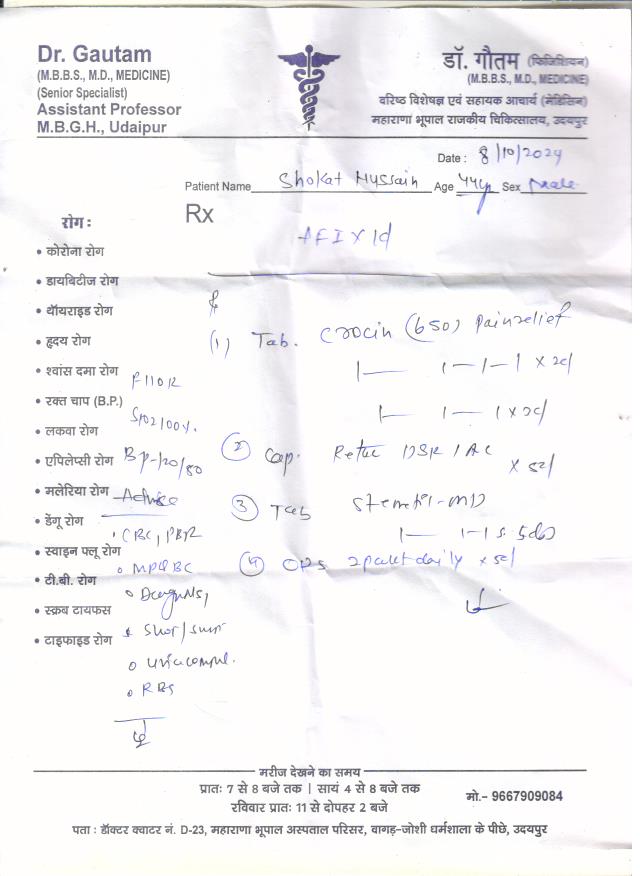 Dr. Gautam
(M.B.B.S., M.D., MEDICINE)
(Senior Specialist)
Assistant Professor
M.B.G.H., Udaipur
डॉ. गौतम (फिजिशियन)
(M.B.B.S., M.D., MEDICINE)
वरिष्ठ विशेषज्ञ एवं सहायक आचार्य (मेडिसिन)
महाराणा भूपाल राजकीय चिकित्सालय, उदयपुर
Date : 8/10/2024
Patient Name Shokat Hussain Age 44y Sex Male
Rx
AFI x 1d
रोग :
• कोरोना रोग
• डायबिटीज रोग
• थॉयराइड रोग
• हृदय रोग
• श्वांस दमा रोग
• रक्त चाप (B.P.)
• लकवा रोग
• एपिलेप्सी रोग
• मलेरिया रोग
• डेंगू रोग
• स्वाइन फ्लू रोग
• टी.बी. रोग
• स्क्रब टायफस
• टाइफाइड रोग
P110
SPO2 100%
BP-120/80
Advise
CBC, PBF
MPQBC
RBS
(1) Tab. Crocin (650) Pain relief
1— 1-1-1 x 2d
1— 1— 1 x 2d
(2) Cap. DSR 1 AC x 5d
(3) Tab Stemetil-MD
1— 1-1 5d
(4) ORS 2 packet daily x 5d
मरीज देखने का समय
प्रातः 7 से 8 बजे तक | सायं 4 से 8 बजे तक
रविवार प्रातः 11 से दोपहर 2 बजे
मो.- 9667909084
पता : डॉक्टर क्वाटर नं. D-23, महाराणा भूपाल अस्पताल परिसर, वागड़-जोशी धर्मशाला के पीछे, उदयपुर